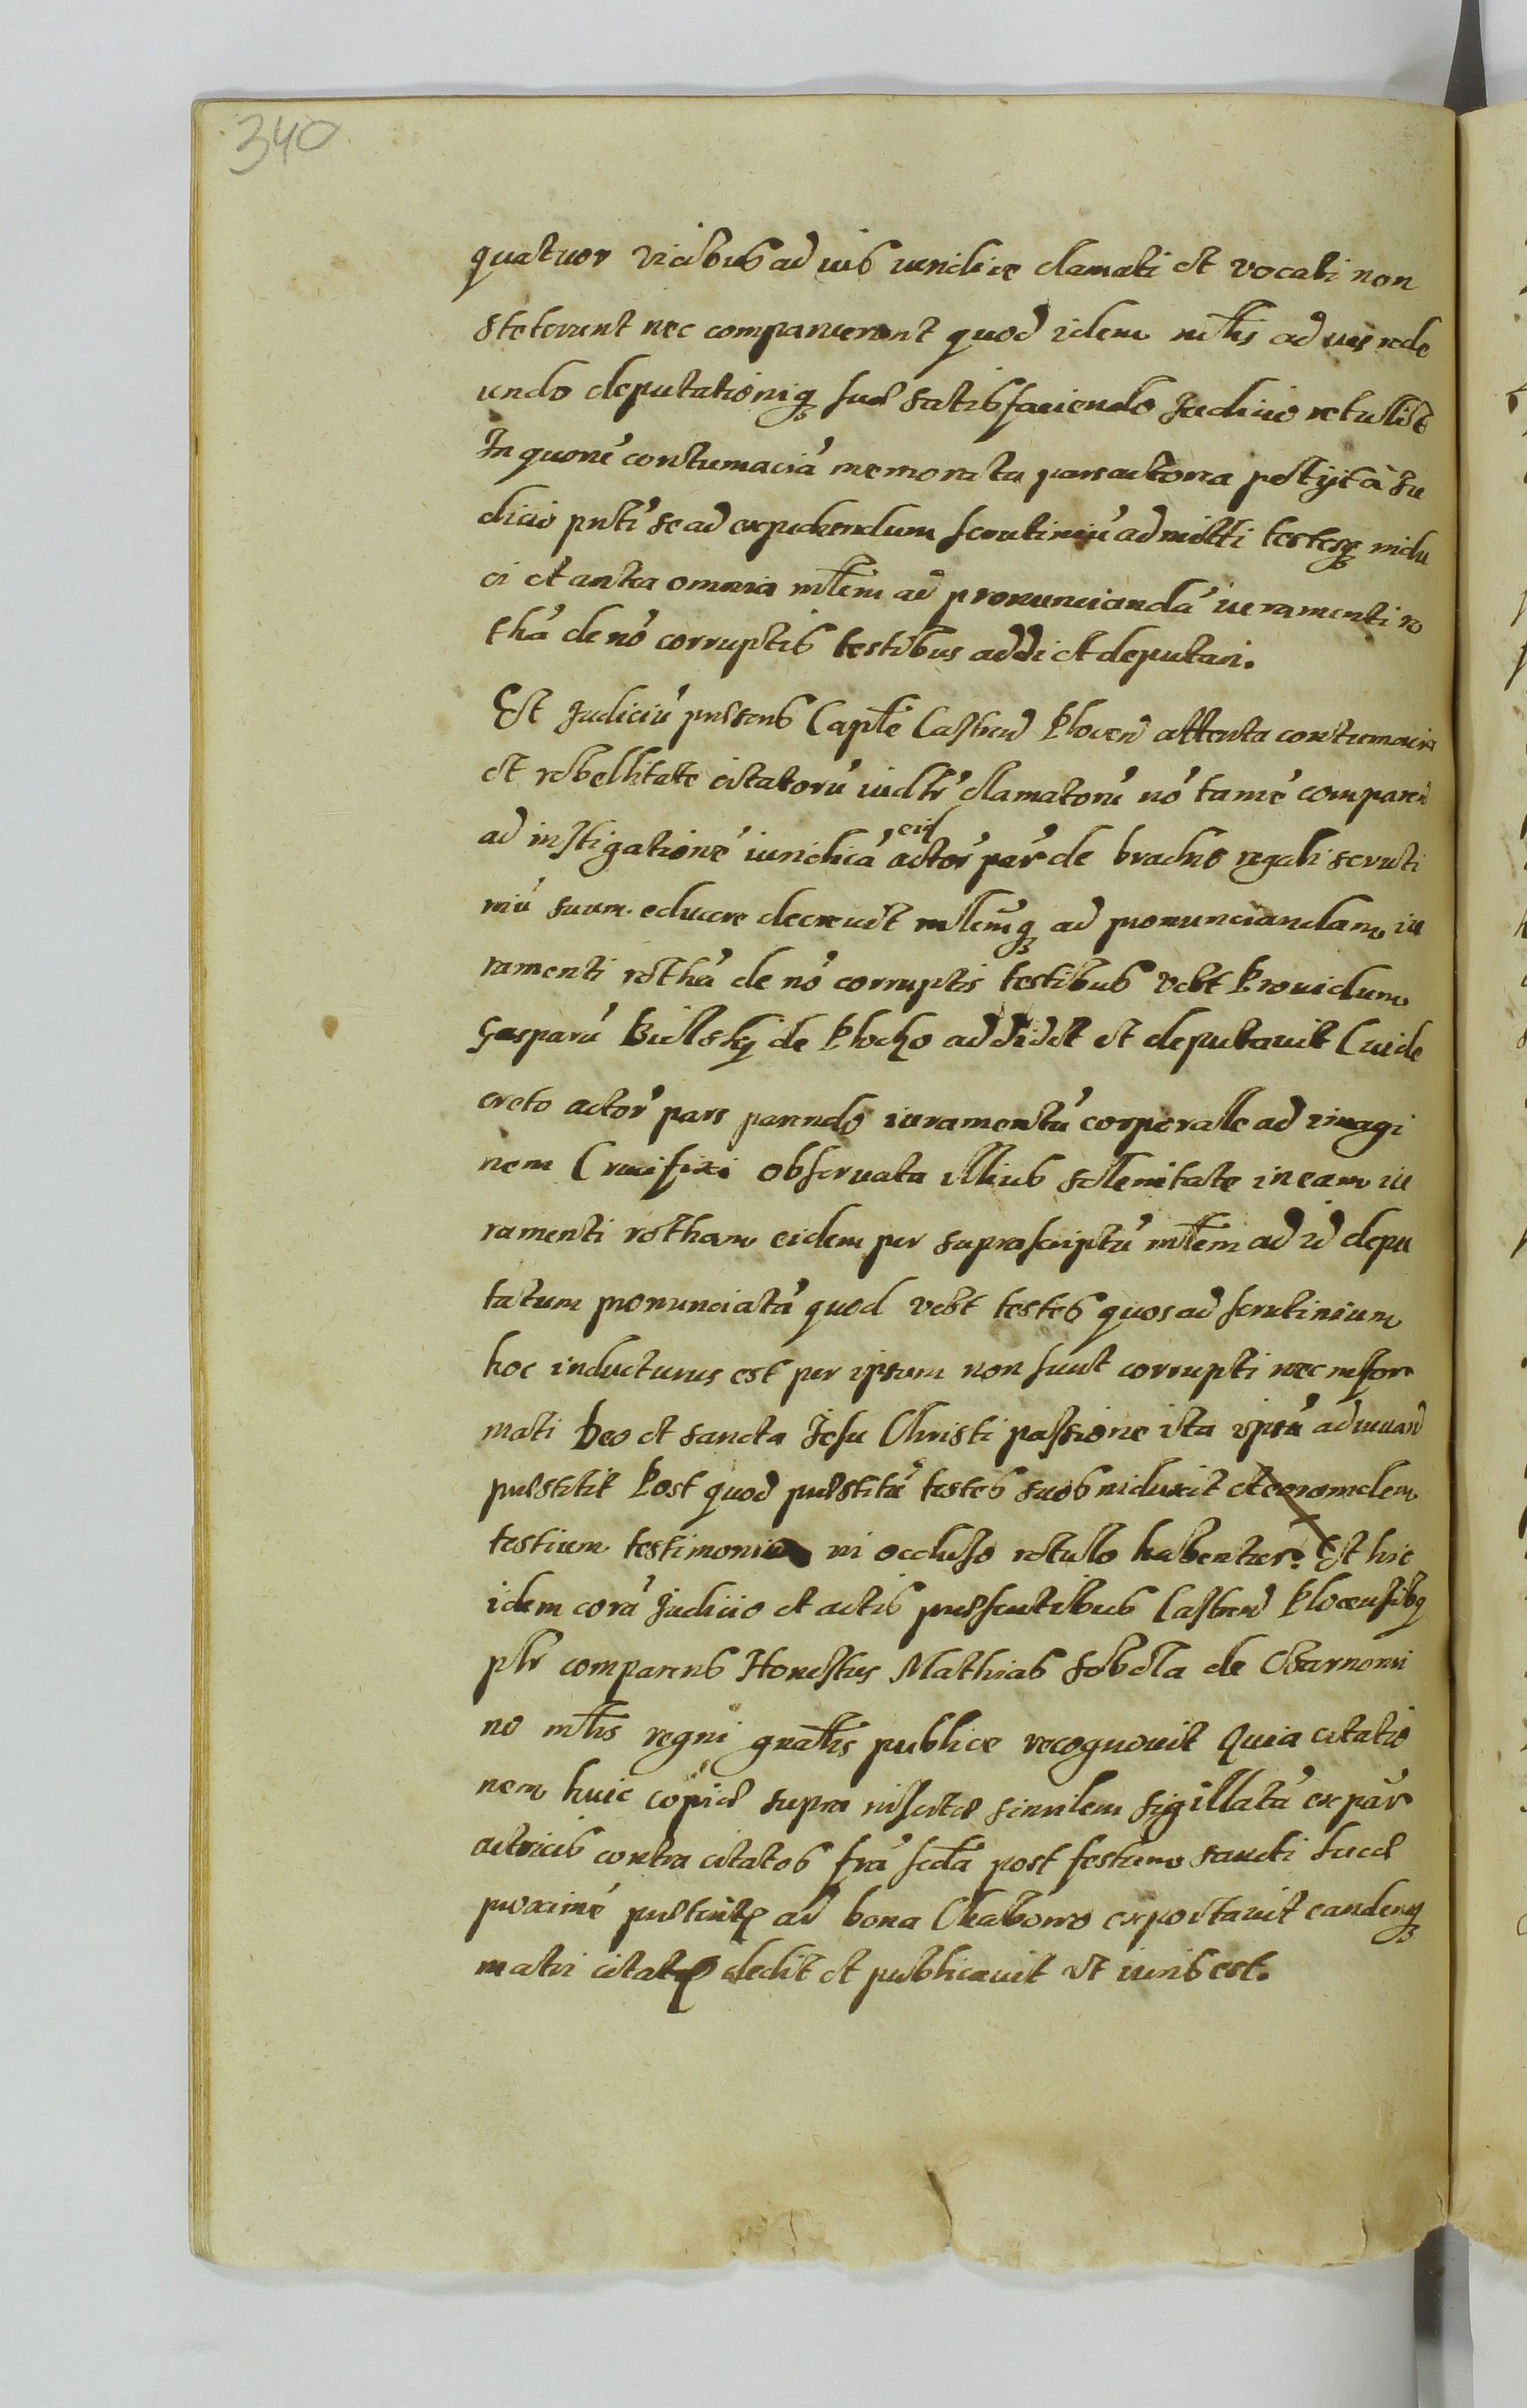 340
quatuor vicibus ad ius iuridice clamati et vocati non
steterunt nec comparuerunt quod idem mltis ad ius rede
undo deputationiq sue satisfaciendo Judicio retullit
In quoru contumaciā memorata pars actorea petijt à Ju
dicio pnti se ad expediendum scrutiniū admitti testesq indu
ci et antea omnia mltem ad pronunciandā iuramenti ro
thā de nō corruptis testibus addi et deputari.
Et Judiciū presens Caple Castren Plocen attenta contumacia
et rebellitate citatorū iudtr clamatorū nō tamē comparen
ad instigationē iuridicā actor eid par de brachio regali scruti
niū suum educere decreuit mltemq ad pronunciandam iu
ramenti rothā de nō corruptis testibus vdt Prouidum
Gasparū Bielsky de Plocko addidit et deputauit Cui de
creto actor pars parendo iuramentū corporalle ad imagi
nem Crucifixi obseruata illius sollenitate in eam iu
ramenti rotham eidem per suprascriptū mltem ad id depu
tatum pronunciatā quod vdt testes quos ad scrutinium
hoc inducturus est per ipsum non sunt corrupti nec infor
mati Deo et sancta Jesu Christi passione ita ipsū adiuuan
prestitit Post quod prestitū testes suos induxit et eorumdem
testium testimonia in occluso rotulo habentur. Et hic
idem corā Judicio et actis presentibus Castren Plocensibq
plr comparens Honestus Mathias Sobola de Czarnomi
no mltis regni gnalis publice recognouit Quia citatio
nem huic copie supra inserte similem sigillatā ex par
actricis contra citatos frā scda post festum sancti Luce
proximē preterit ad bona Chabowo exportauit eandemq
matri citat dedit et publicauit vt iuris est.